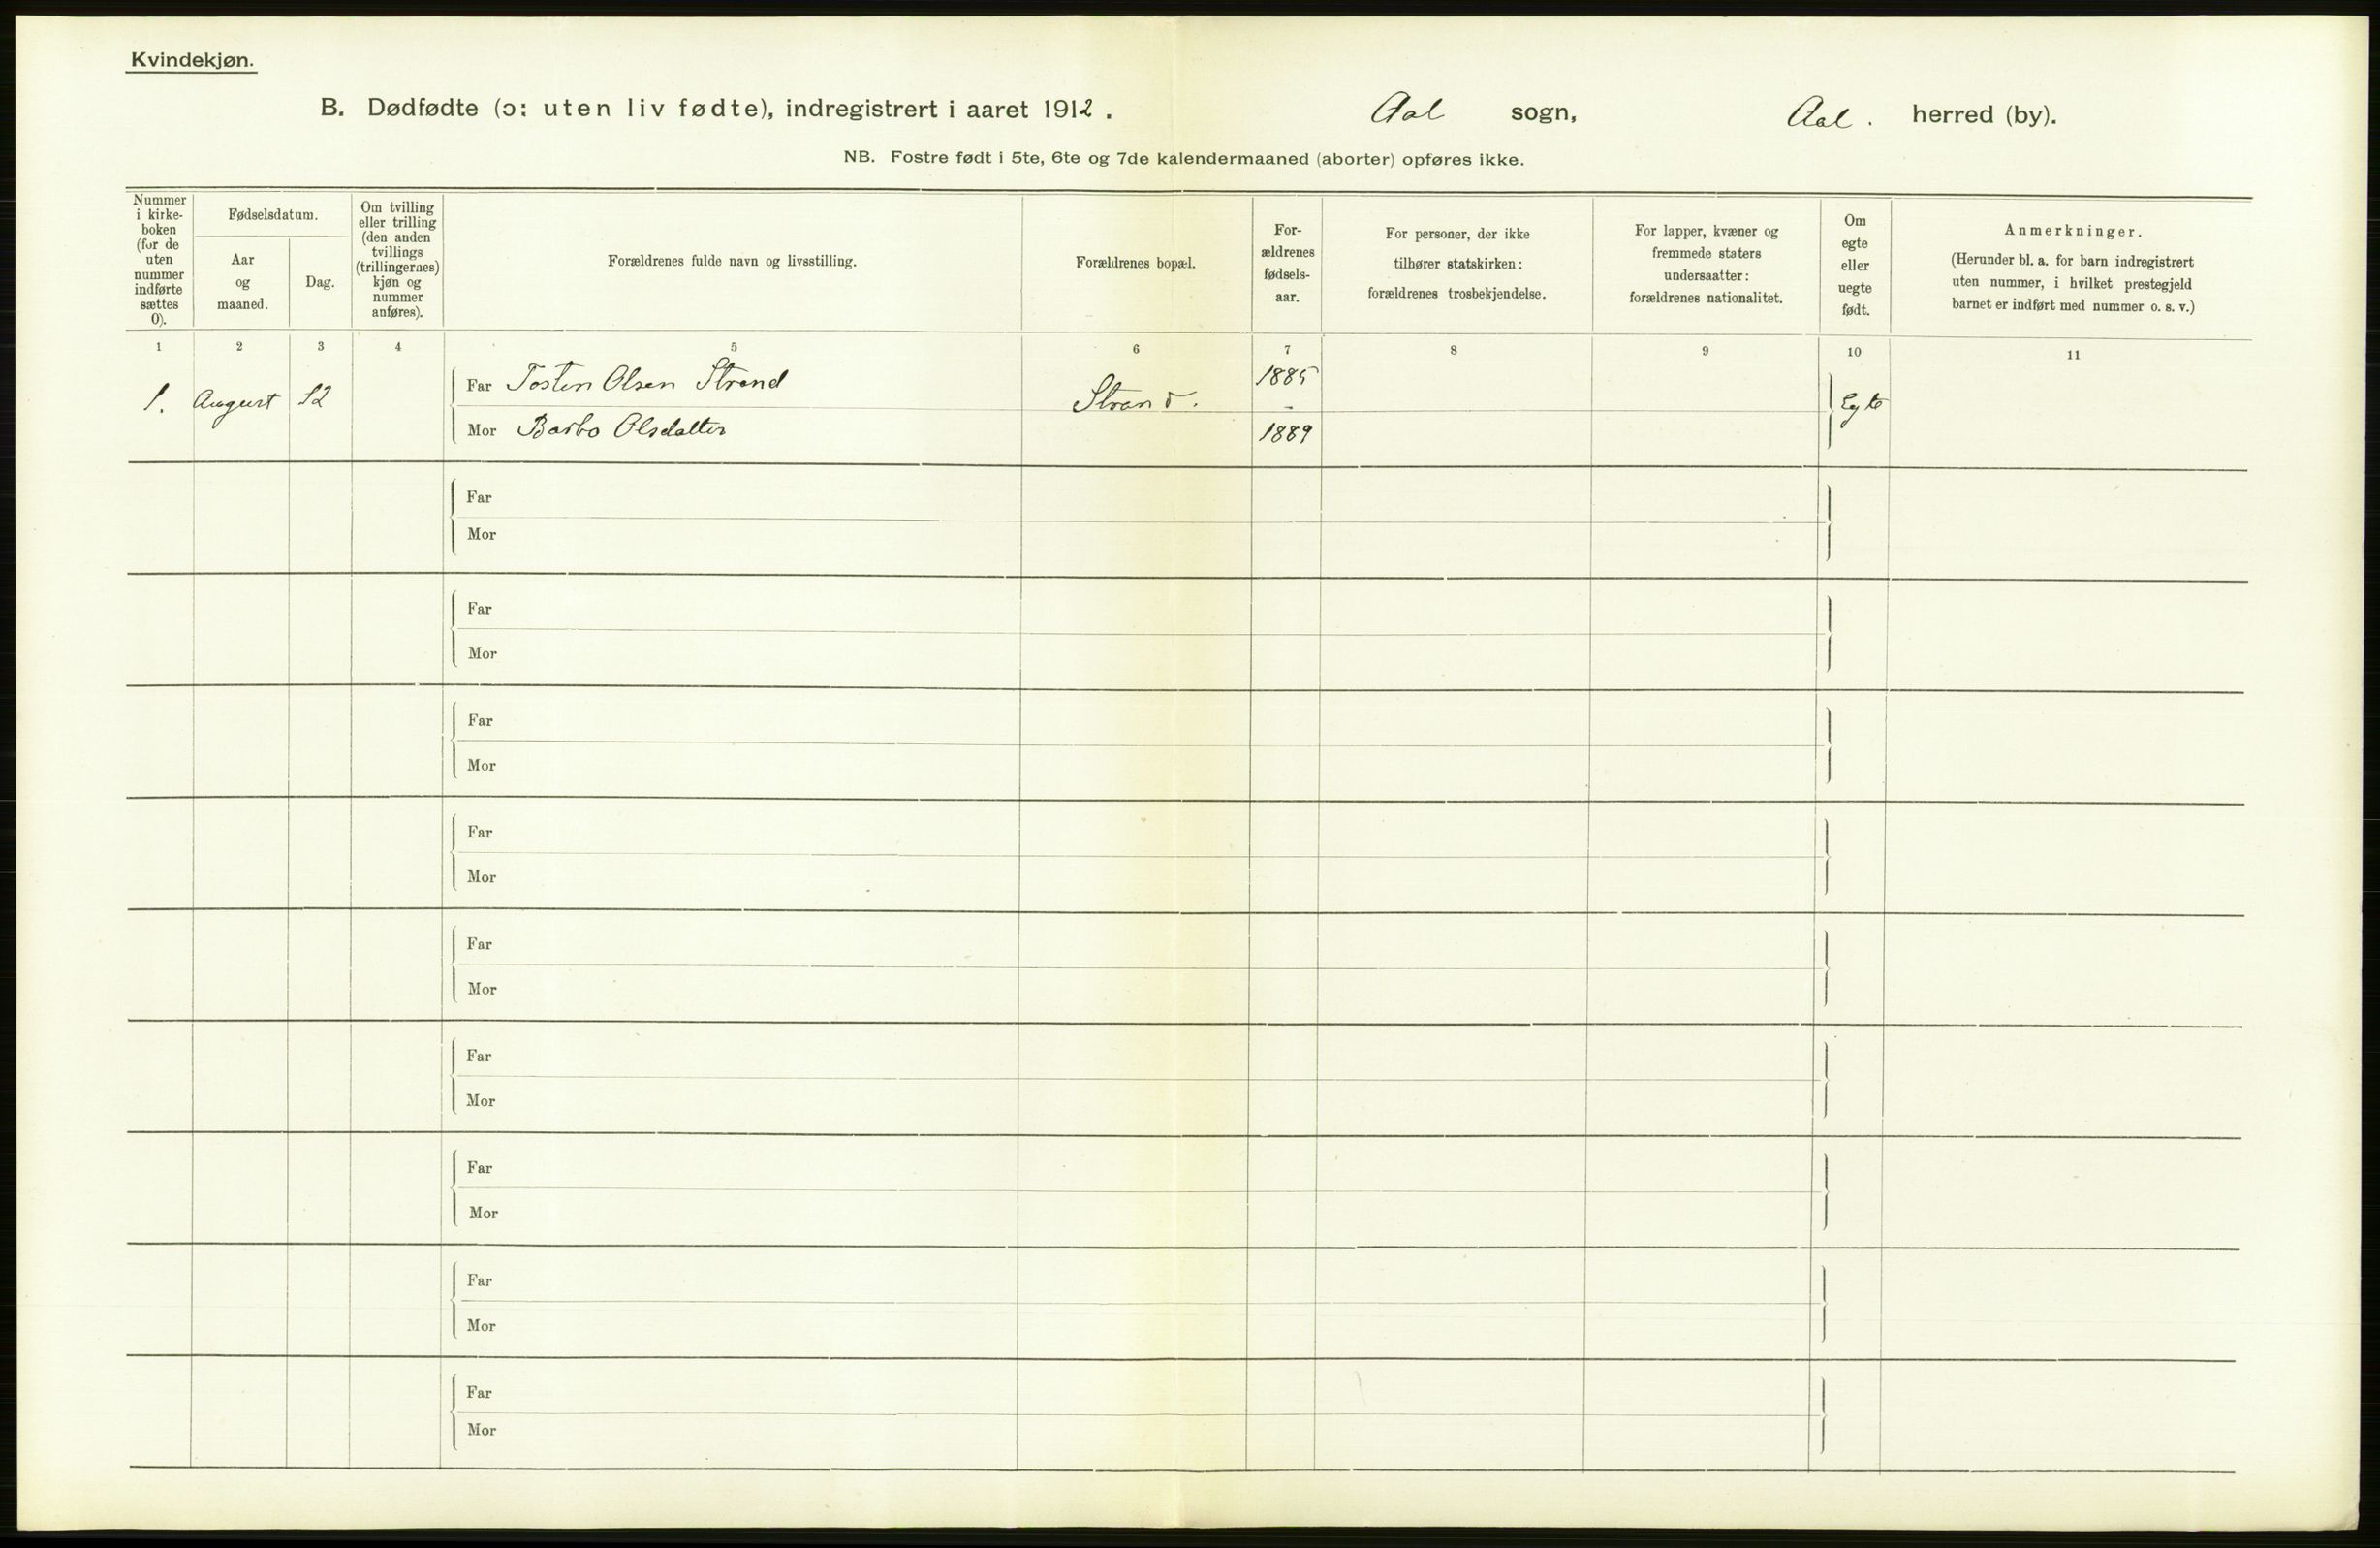 Kvindekjøn.
B. Dødfødte (ɔ: uten liv fødte), indregistrert i aaret 1912. Aal sogn, Aal. herred (by).
NB. Fostre født i 5te, 6te og 7de kalendermaaned (aborter) opføres ikke.
Nummer
i kirke-
boken
(for de
uten
nummer
indførte
sættes
0).
Fødselsdatum.
Aar
og
maaned.
Dag.
Om tvilling
eller trilling
(den anden
tvillings
(trillingernes)
kjøn og
nummer
anføres).
Forældrenes fulde navn og livsstilling.
Forældrenes bopæl.
For-
ældrenes
fødsels-
aar.
For personer, der ikke
tilhører statskirken:
forældrenes trosbekjendelse.
For lapper, kvæner og
fremmede staters
undersaatter:
forældrenes nationalitet.
Om
egte
eller
uegte
født.
Anmerkninger.
(Herunder bl. a. for barn indregistrert
uten nummer, i hvilket prestegjeld
barnet er indført med nummer o. s. v.)
1 2 3 4 5 6 7 8 9 10 11
1. August 12 Far Tosten Olsen Strand Strand. 1885 Egte
-
Mor Barbo Olsdatter 1889
Far
Mor
Far
Mor
Far
Mor
Far
Mor
Far
Mor
Far
Mor
Far
Mor
Far
Mor
Far
Mor